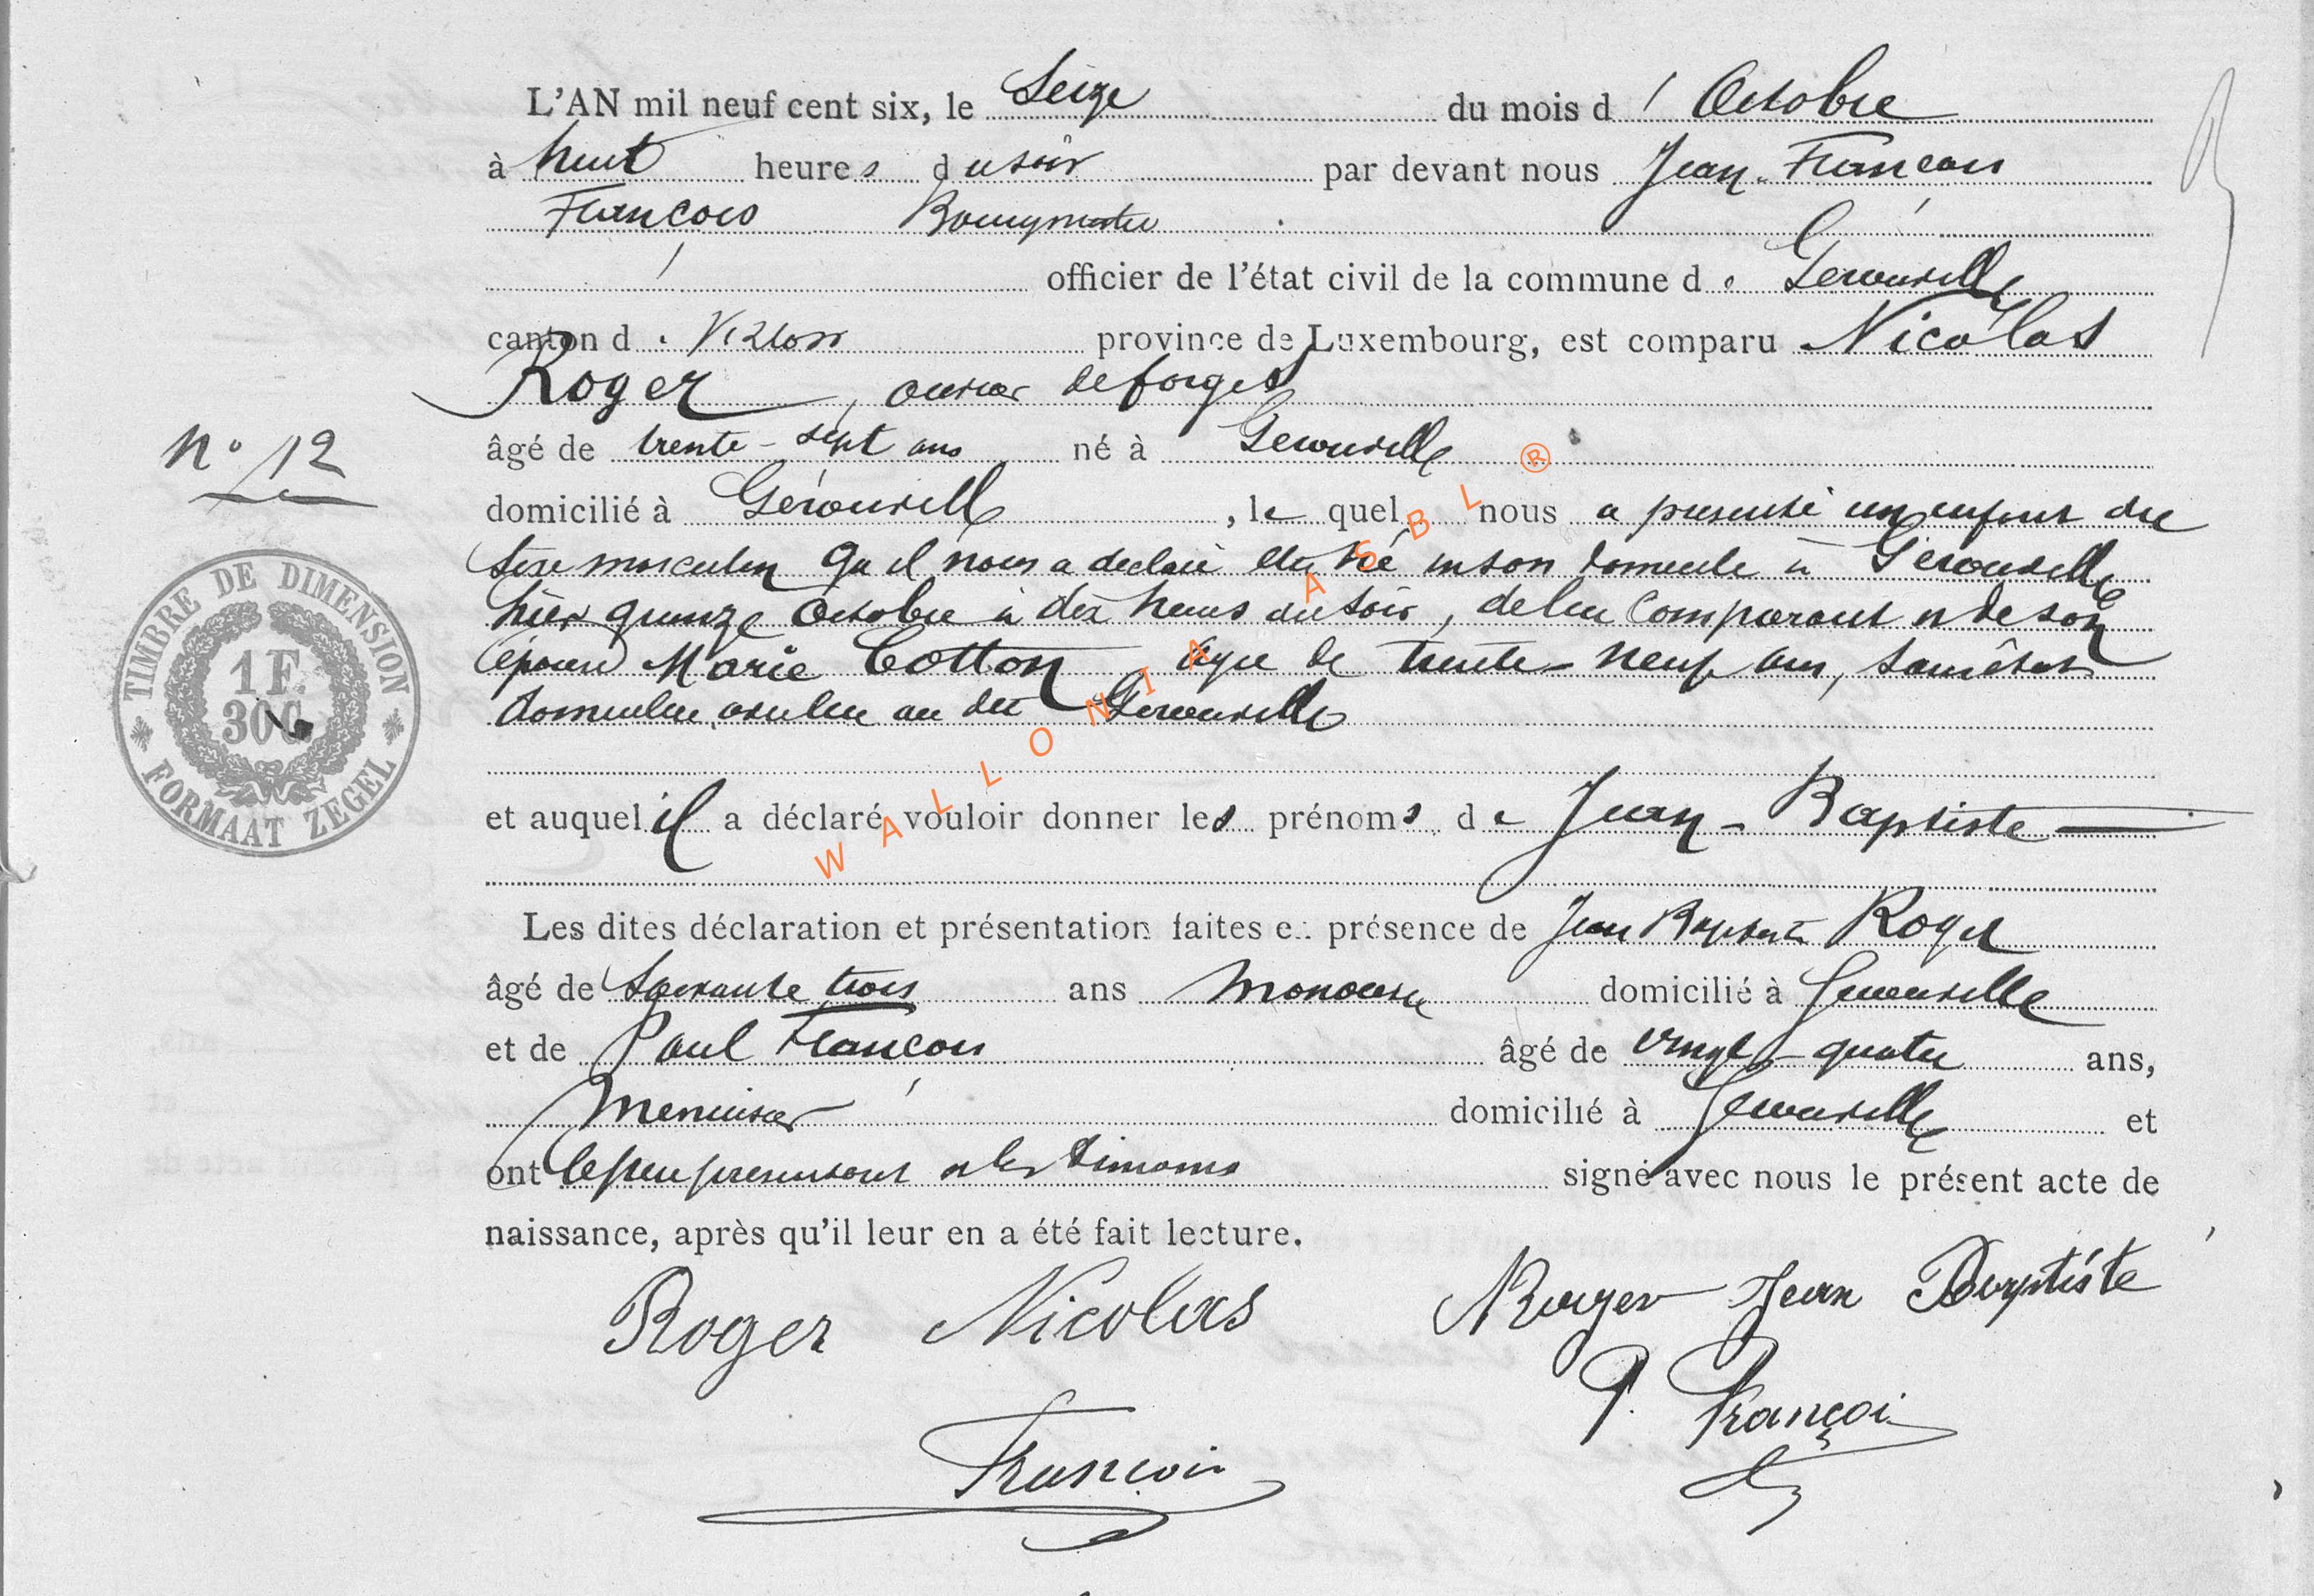 L'AN mil neuf cent six, le Seize du mois d' Octobre
à huit heures du soir par devant nous Jean-François
François Bourgmestre
officier de l'état civil de la commune de Gérouville
canton de Virton province de Luxembourg, est comparu Nicolas
Roger, ouvrier de forges
N° 12
âgé de trente-sept ans né à Gérouville
domicilié à Gérouville, lequel nous a présenté un enfant du
sexe masculin qu'il nous a déclaré être né en son domicile à Gérouville
hier quinze Octobre à dix heures du soir, de lui comparant et de son
épouse Marie Cotton âgée de trente-neuf ans, sans état
domiciliée avec lui au dit Gérouville
TIMBRE DE DIMENSION
1 F.
30 C.
FORMAAT ZEGEL
et auquel il a déclaré vouloir donner les prénoms de Jean-Baptiste
Les dites déclaration et présentation faites en présence de Jean Baptiste Roger
âgé de soixante trois ans domicilié à Gérouville
et de Paul François âgé de vingt-quatre ans,
menuisier domicilié à Gérouville et
ont le père présentant et les témoins signé avec nous le présent acte de
naissance, après qu'il leur en a été fait lecture.
Roger Nicolas Roger Jean Baptiste
P. François
François
WALLONIA ASBL ®